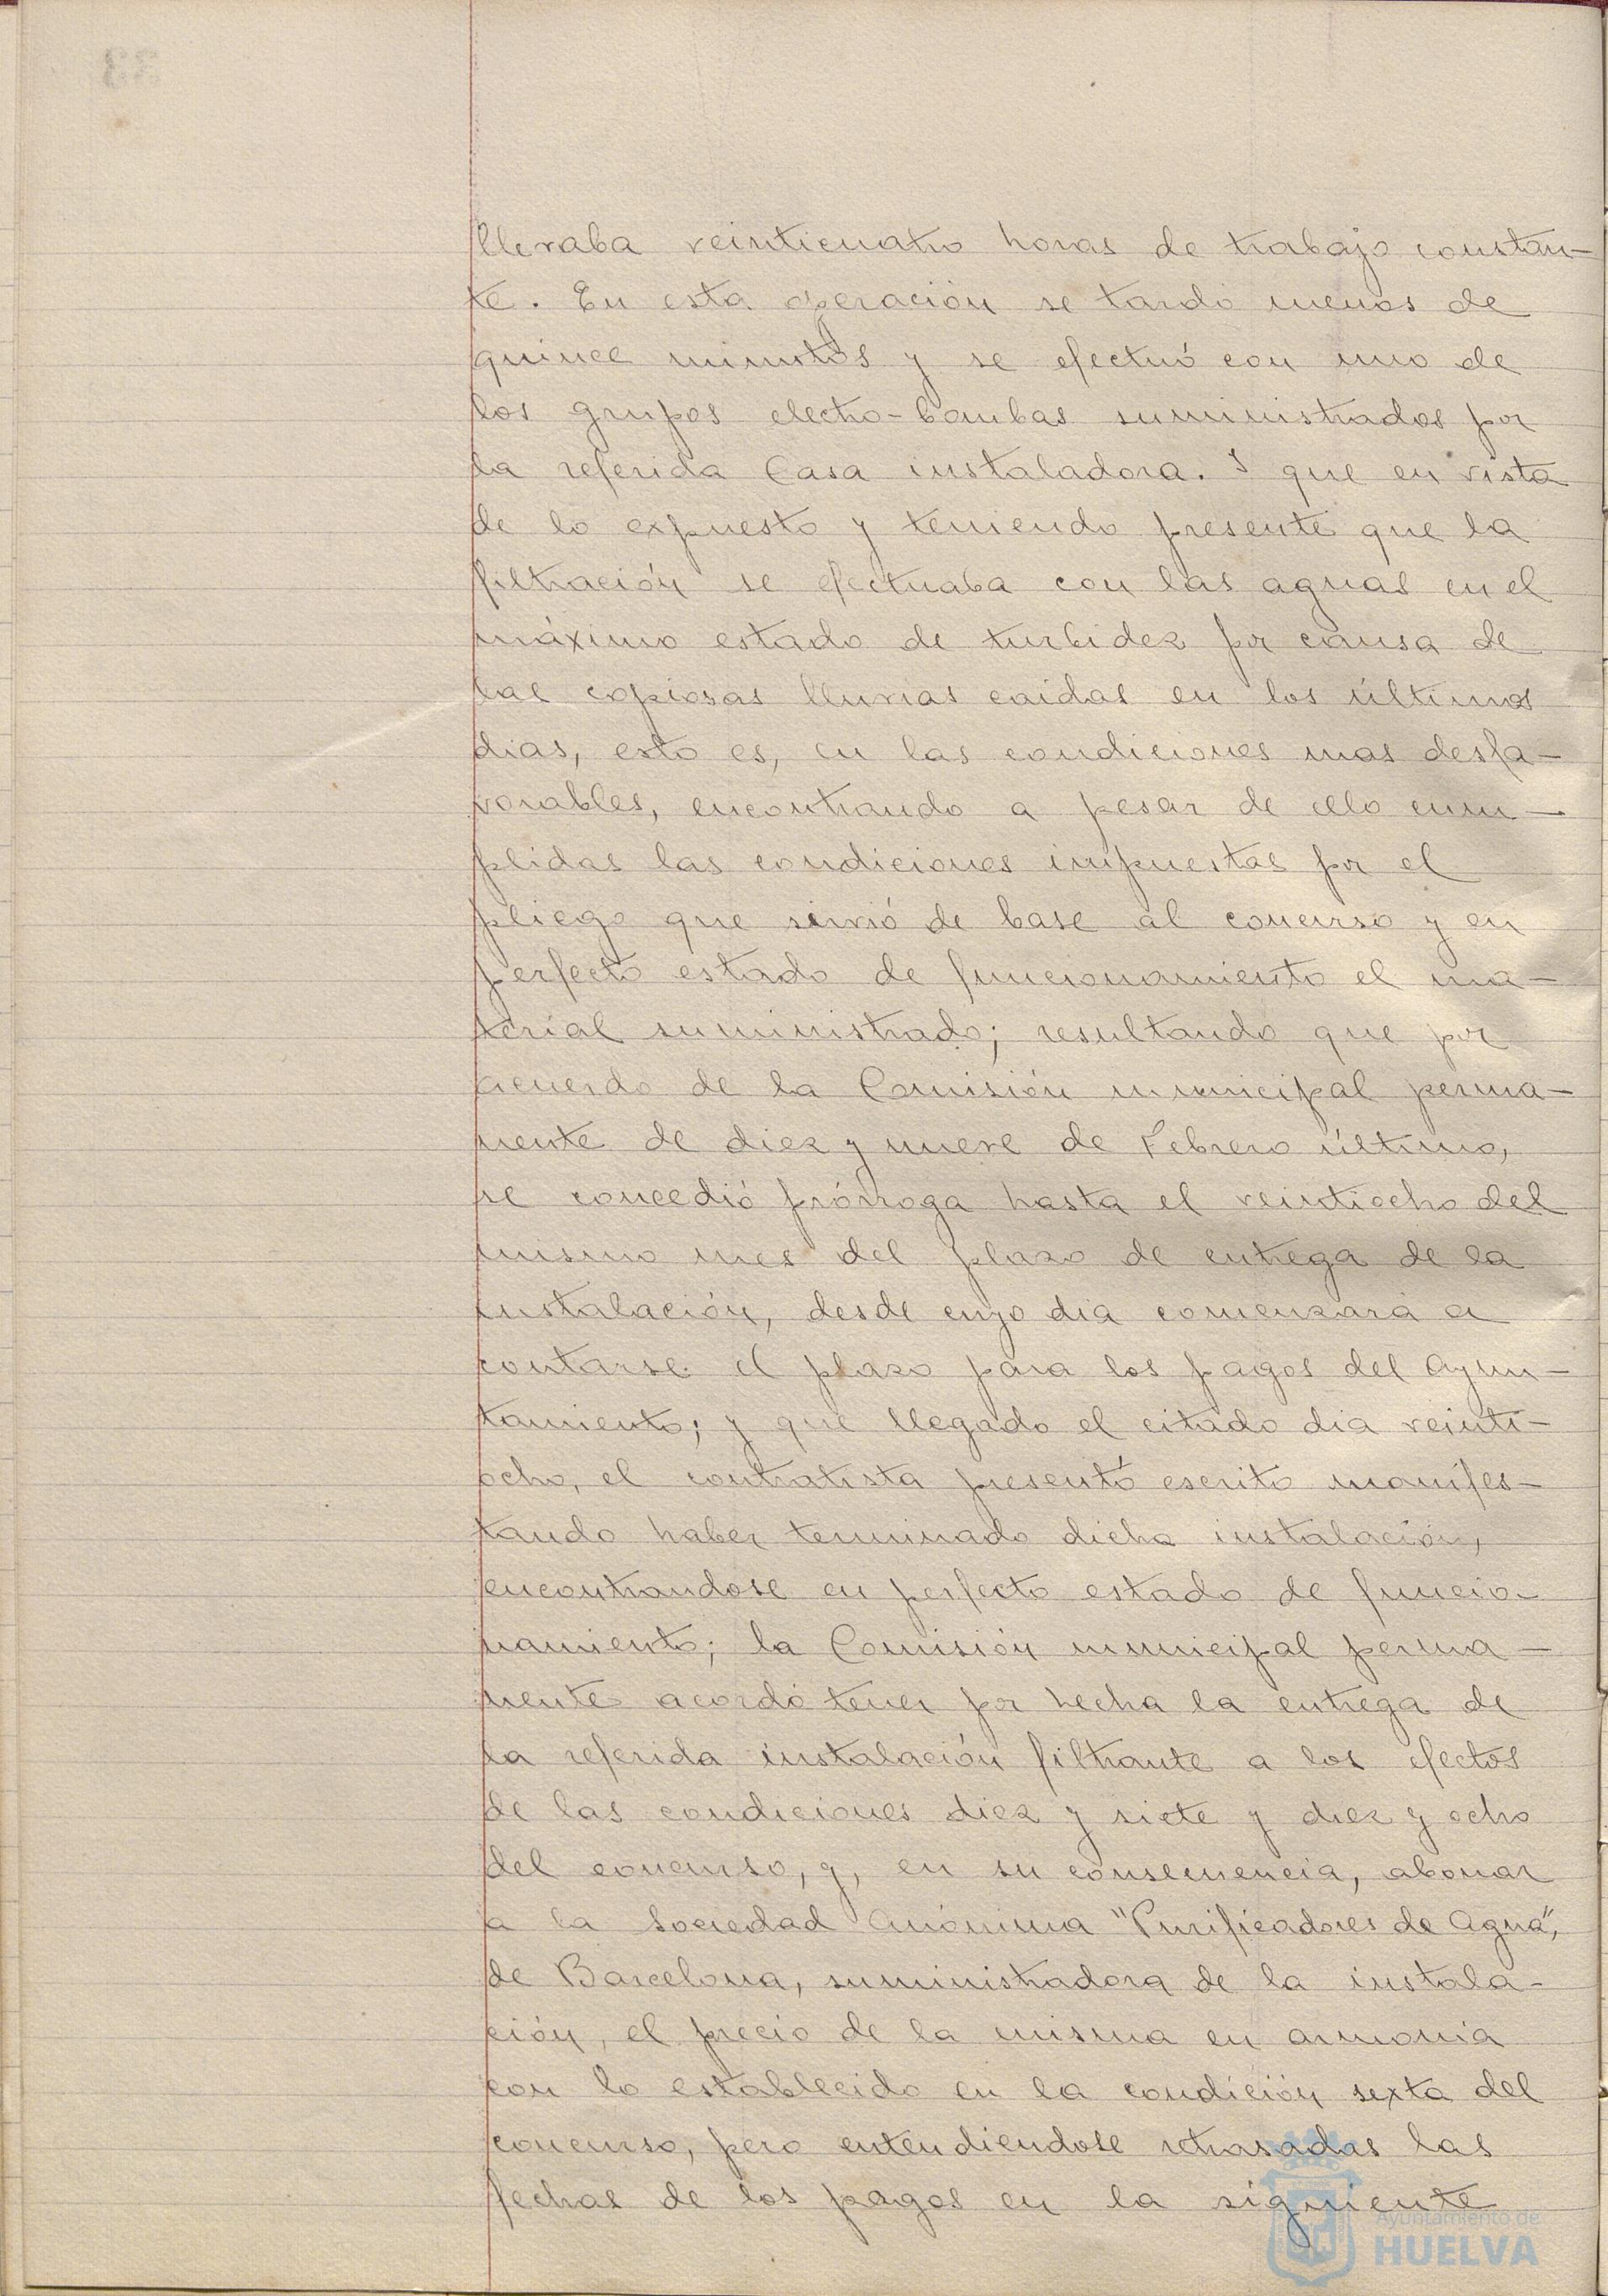 llevaba veinticuatro horas de trabajo constan-
te. En esta operación se tardó menos de
quince minutos y se efectuó con uno de
los grupos electro-bombas suministrados por
la referida Casa instaladora. Y que en vista
de lo expuesto y teniendo presente que la
filtración se efectuaba con las aguas en el
máximo estado de turbidez por causa de
las copiosas lluvias caidas en los últimos
dias, esto es, en las condiciones mas desfa-
vorables, encontrando a pesar de ello cum-
plidas las condiciones impuestas por el
pliego que sirvió de base al concurso y en
perfecto estado de funcionamiento el ma-
terial suministrado; resultando que por
acuerdo de la Comisión municipal perma-
nente de diez y nueve de Febrero último,
se concedió prórroga hasta el veintiocho del
mismo mes del plazo de entrega de la
instalación, desde cuyo dia comenzará a
contarse el plazo para los pagos del Ayun-
tamiento; y que llegado el citado dia veinti-
ocho, el contratista presentó escrito manifes-
tando haber terminado dicha instalación,
encontrandose en perfecto estado de funcio-
namiento; la Comisión municipal perma-
nente acordó tener por hecha la entrega de
la referida instalación filtrante a los efectos
de las condiciones diez y siete y diez y ocho
del concurso, y, en su consecuencia, abonar
a la Sociedad Anónima "Purificadores de Agua",
de Barcelona, suministradora de la instala-
ción, el precio de la misma en armonia
con lo establecido en la condición sexta del
concurso, pero entendiendose retrasadas las
fechas de los pagos en la siguiente
Ayuntamiento de
HUELVA